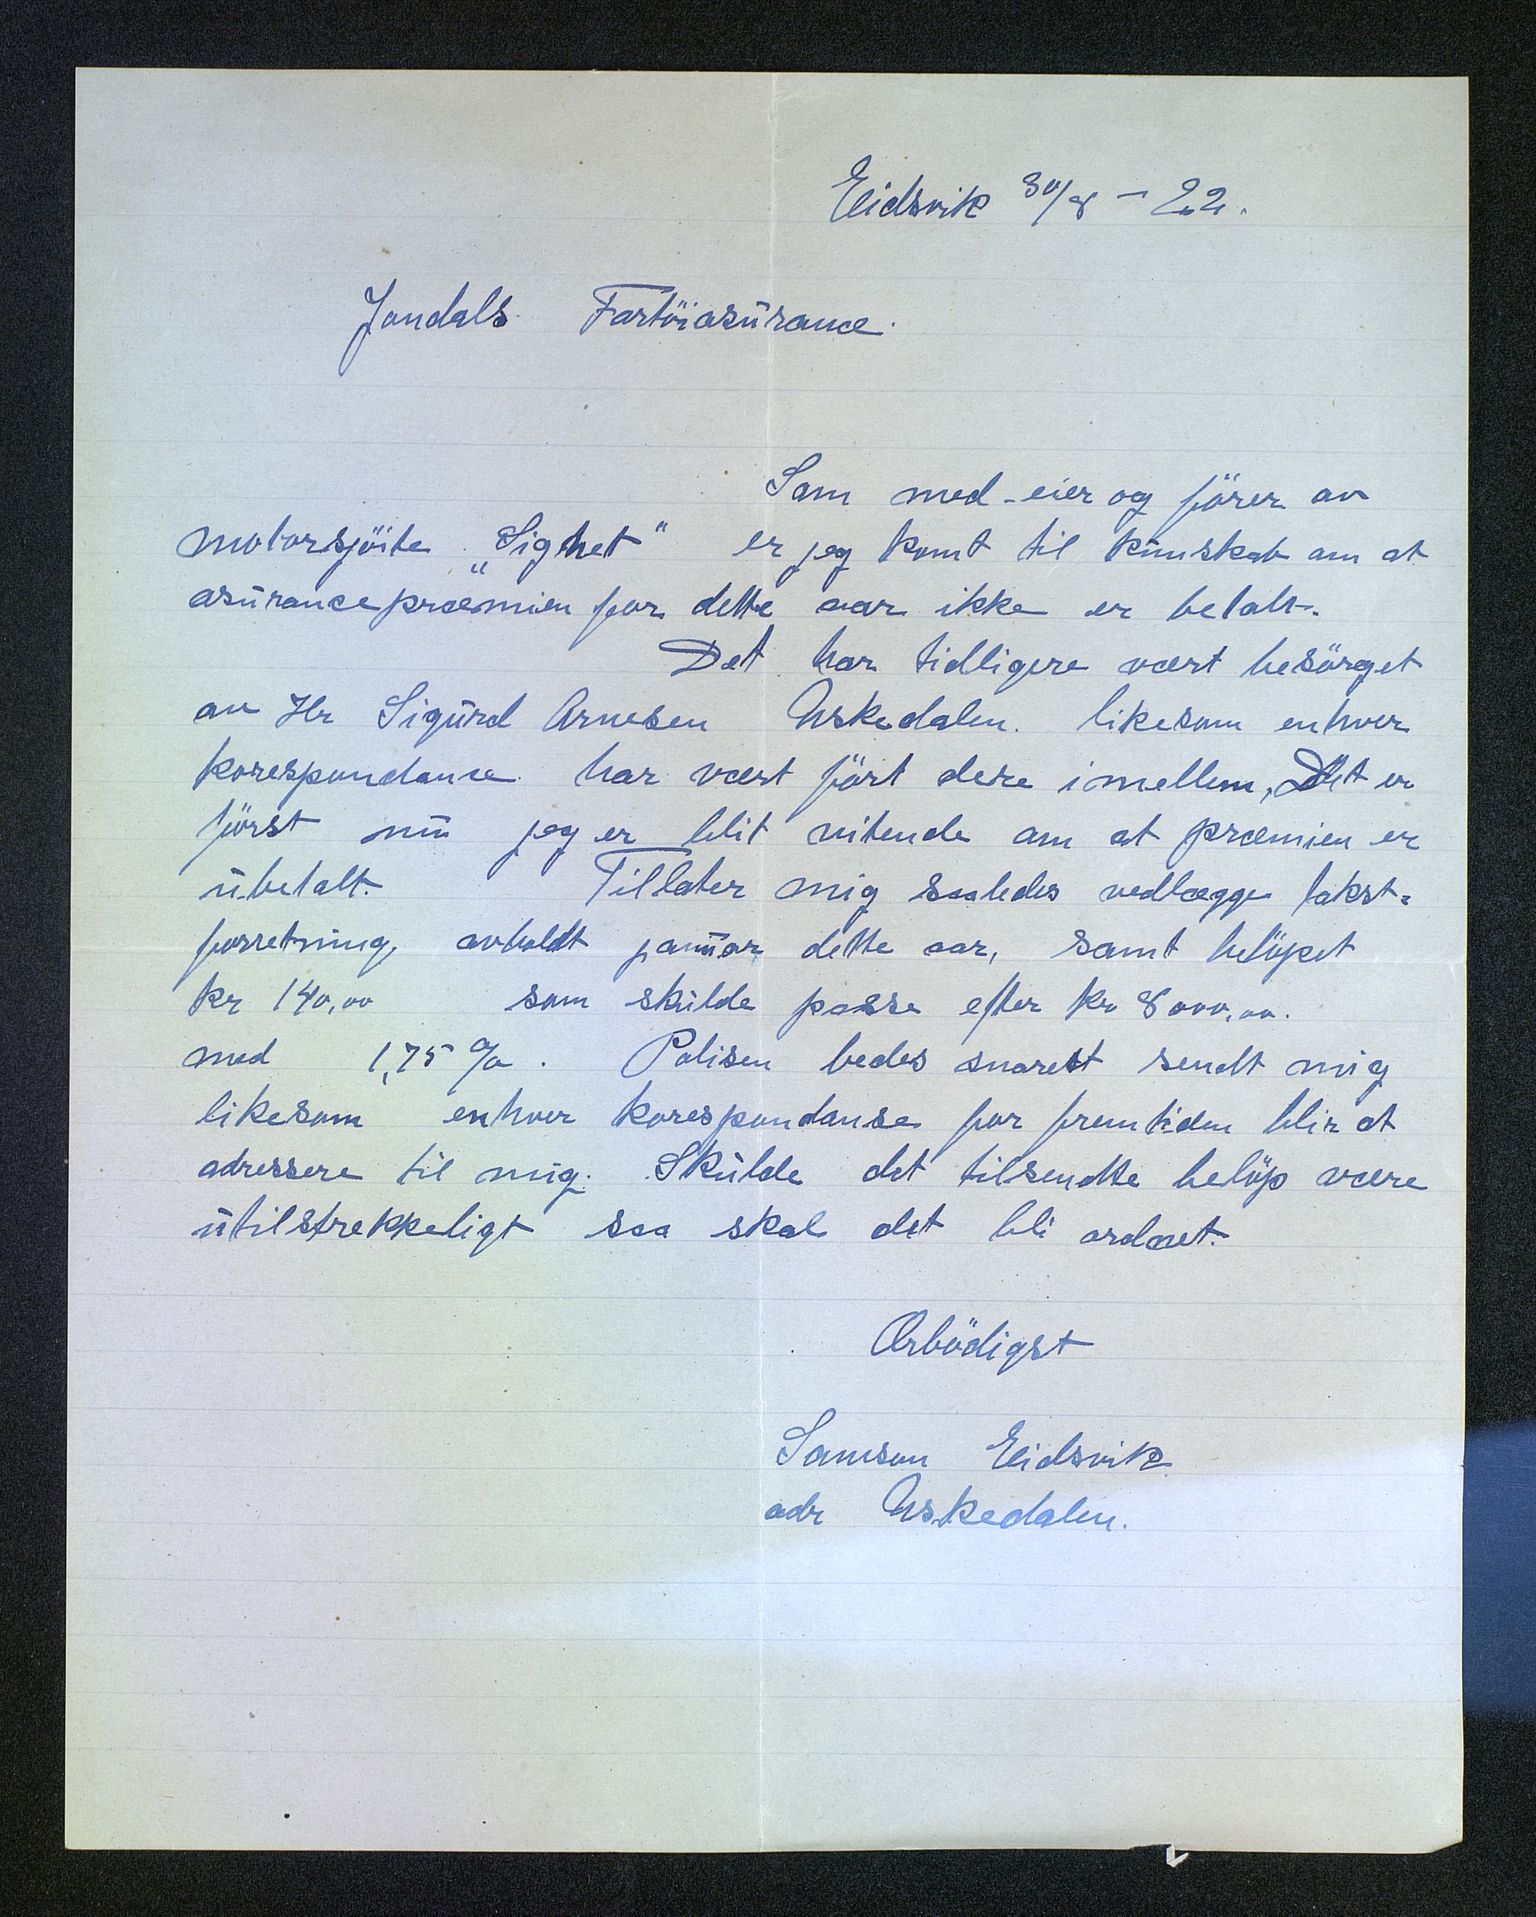 Eidsvik 30/8 – 22.
Jondals Fartöiasurance.
Som med-eier og förer av
motorsjöite „Sighet" er jeg komt til kunskab om at
asurancepræmien for dette aar ikke er betalt.
Det har tidligere vært besörget
av Hr Sigurd Arnesen Uskedalen. likesom enhver
korespondanse har vært fört dere imellem, Det er
först nu jeg er blit vitende om at præmien er
ubetalt. Tillater mig saaledes vedlægge takst-
forretning, avholdt januar dette aar, samt belöpet
kr 140,00 som skulde passe efter kr 8000,00.
med 1,75 %. Polisen bedes snarest sendt mig
likesom enhver korespondanse for fremtiden blir at
adressere til mig. Skulde det tilsendte belöp være
utilstrekkeligt saa skal det bli ordnet.
Ærbödigst
Samson Eidsvik
adr Uskedalen.